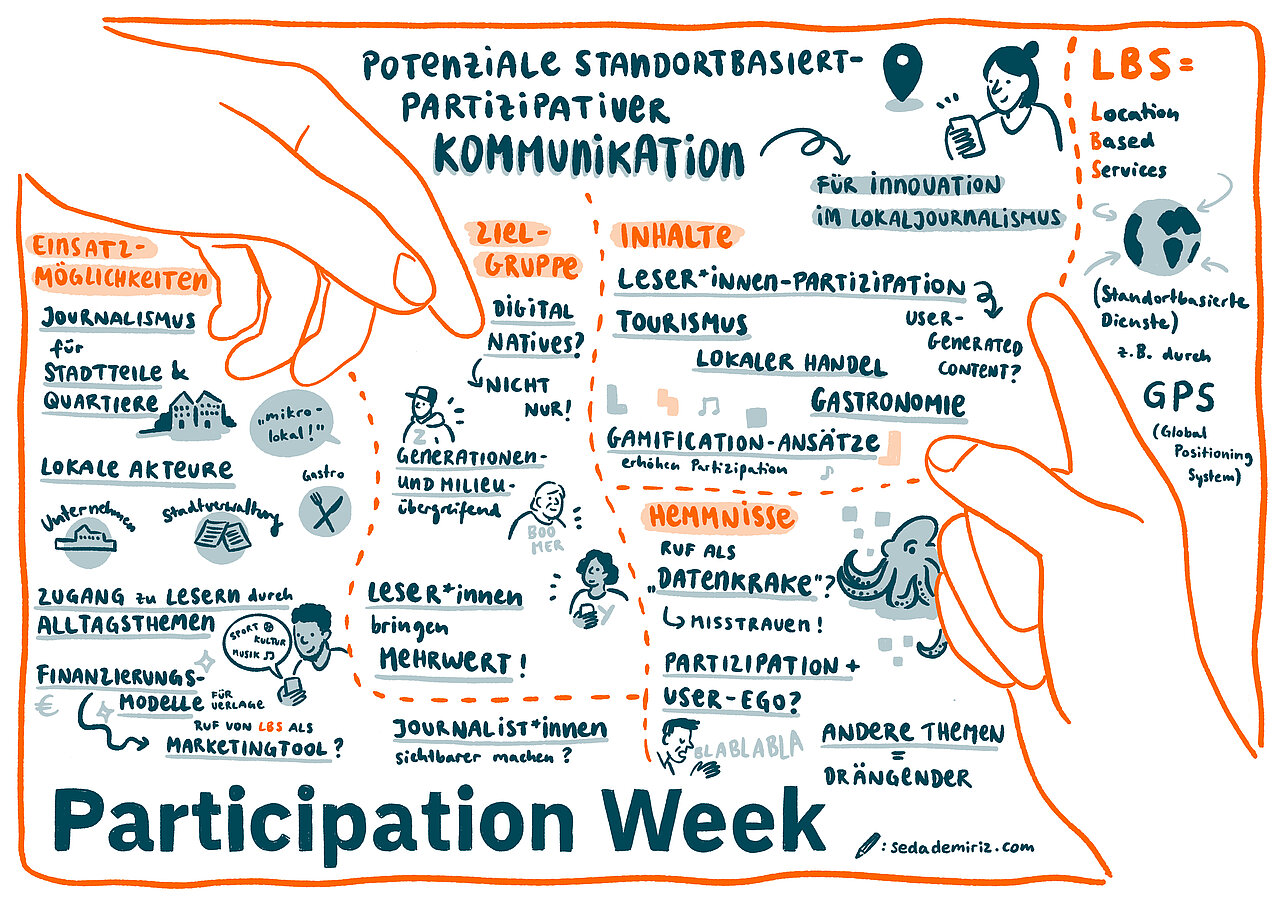 POTENZIALE STANDORTBASIERT-
PARTIZIPATIVER
KOMMUNIKATION
FÜR INNOVATION
IM LOKALJOURNALISMUS
LBS =
Location
Based
Services
(Standortbasierte
Dienste)
z.B. durch
GPS
(Global
Positioning
System)
EINSATZ-
MÖGLICHKEITEN
JOURNALISMUS
für
STADTTEILE &
QUARTIERE
„mikro-
lokal!"
LOKALE AKTEURE
Unternehmen
Stadtverwaltung
Gastro
ZUGANG zu LESERN durch
ALLTAGSTHEMEN
SPORT
KULTUR
MUSIK
FINANZIERUNGS-
MODELLE FÜR
VERLAGE
€
RUF VON LBS ALS
MARKETINGTOOL?
ZIEL-
GRUPPE
DIGITAL
NATIVES?
NICHT
NUR!
Z
GENERATIONEN-
UND MILIEU-
übergreifend
BOO
MER
Y
LESER*innen
bringen
MEHRWERT!
JOURNALIST*innen
sichtbarer machen?
INHALTE
LESER*INNEN-PARTIZIPATION
USER-
GENERATED
CONTENT?
TOURISMUS
LOKALER HANDEL
GASTRONOMIE
GAMIFICATION-ANSÄTZE
erhöhen Partizipation
HEMMNISSE
RUF ALS
„DATENKRAKE"?
MISSTRAUEN!
PARTIZIPATION +
USER-EGO?
BLABLABLA
ANDERE THEMEN
=
DRÄNGENDER
Participation Week
: sedademiriz.com